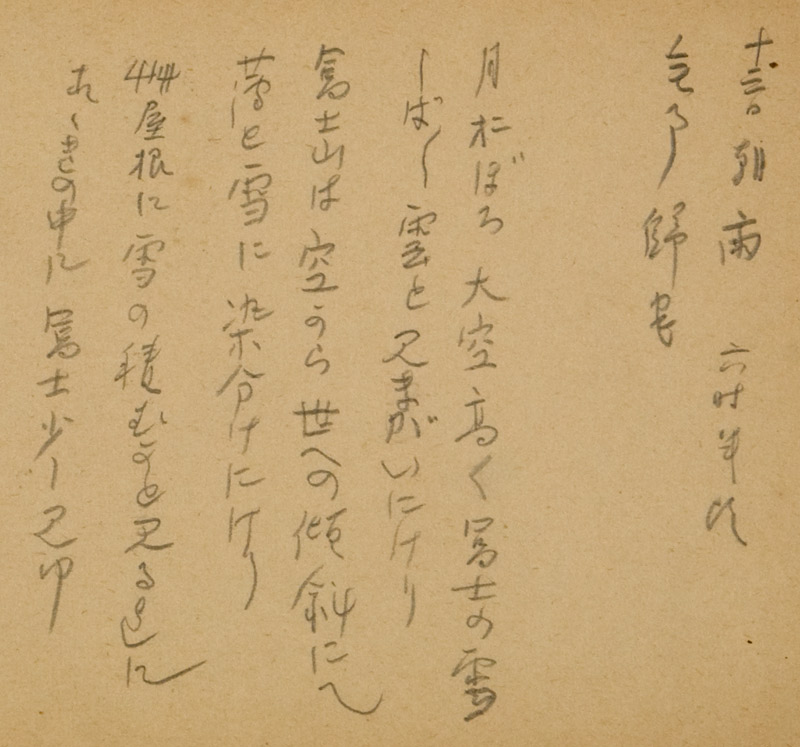 十三日 朝 雨 六時半頃
帰宅
月おぼろ 大空高く冨士の雪
しばし 雲と見まがいにけり
冨士山は空から世への傾斜にて
藍と雪に染分けにけり
艸屋根に雪の積むかと見るまに
の中に 冨士少し見ゆ